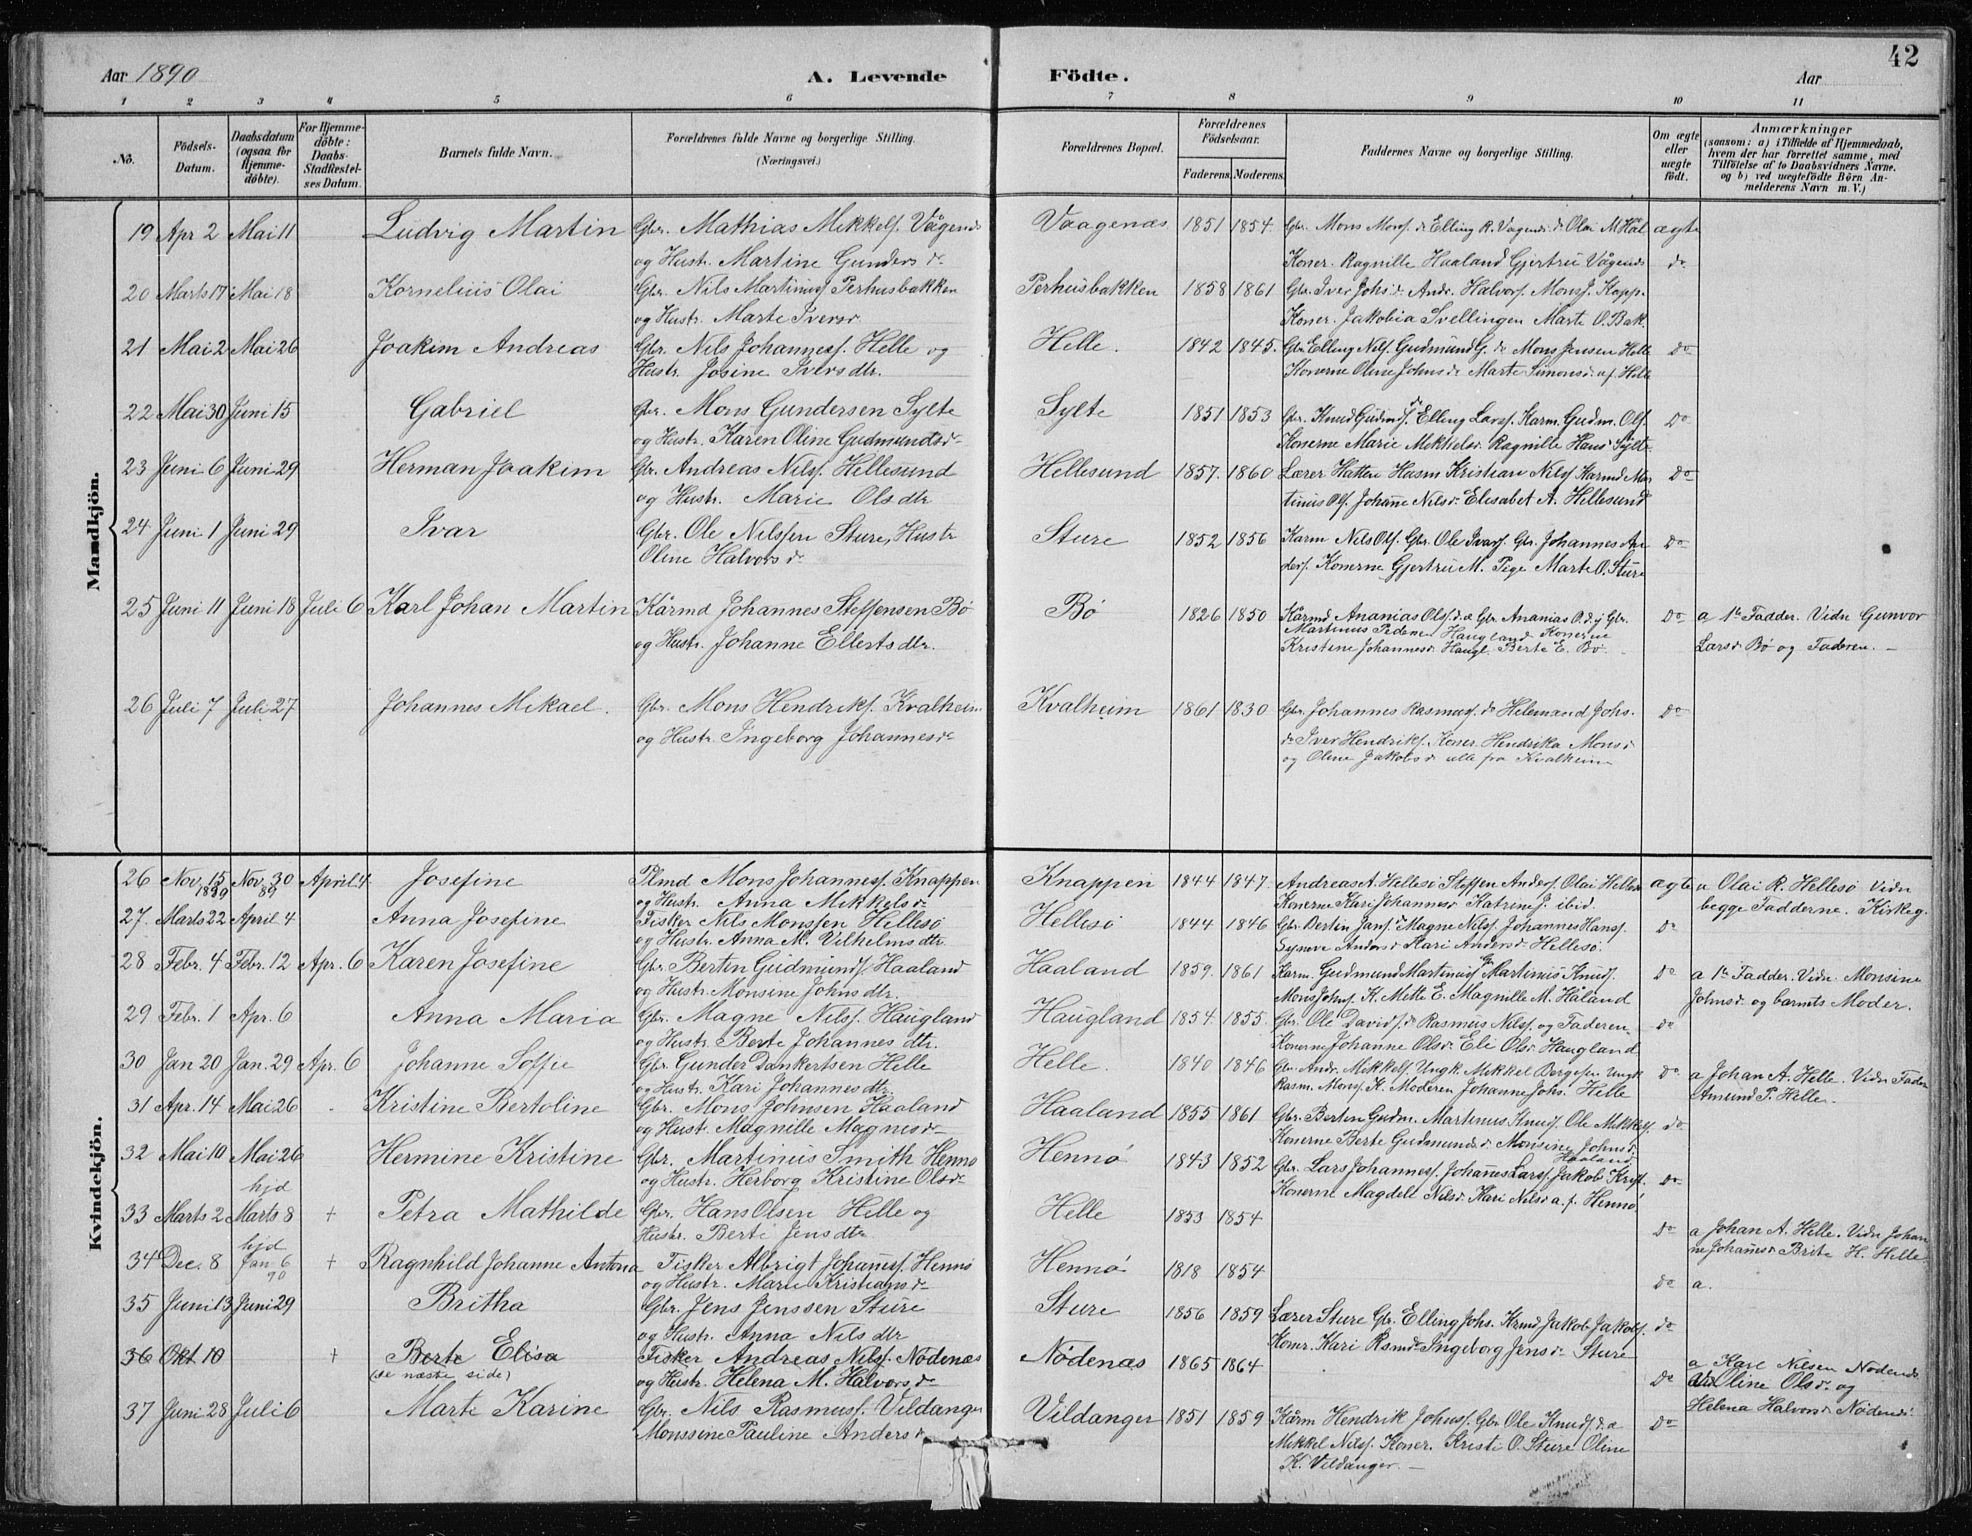 42
Aar 1890
A. Levende Födte.
Aar
1 2 3 4 5 6 7 8 9 10 11
No.
Födsels-Datum.
Daabsdatum (ogsaa for Hjemme-döbte).
For Hjemme-döbte: Daabs-Stadfæstel-ses Datum.
Barnets fulde Navn.
Forældrenes fulde Navne og borgerlige Stilling.
(Næringsvei.)
Forældrenes Bopæl.
Forældrenes Födselsaar.
Faderens. Moderens.
Faddernes Navne og borgerlige Stilling.
Om ægte eller uægte födt.
Anmærkninger
(saasom: a) i Tilfælde af Hjemmedaab,
hvem der har forrettet samme, med
Tilföielse af to Daabsvidners Navne.
og b) ved uegtefödte Börn An-
melderens Navn m. V.)
Mandkjön.
19 Apr 2 Mai 11 Ludvig Martin Gbr. Mathias Mikkels. Vågenes Vaagenæs 1851 1854 Gbr. Mons Mons. do Elling R. Vågen. do Olai M Hål ægte
og Hustr. Martine Gundersdr Koner. Ragnille Haaland Gjertru Vågenes do
20 Marts 17 Mai 18 Kornelius Olai Gbr. Nils Martinus. Perhusbakken Perhusbakken 1858 1861 Gbr. Iver Johs. do Andr. Halvors. Mons J. Kapp.
og Hustr. Marte Iversdr Koner. Jakobia Svellingen Marte O. Bak.
21 Mai 2 Mai 26 Joakim Andreas Gbr. Nils Johanness. Helle og Helle. 1842 1845. Gbr Elling Nils. Gudmund G. do Mons Jensen Helle do
Hustr. Josine Iversdtr. Konerne Oline Johnsdr Marte Simonsdr a. f. Helle
22 Mai 30 Juni 15 Gabriel Gbr. Mons Gundersen Sylte Sylte 1851 1853 Gbr. Knud Gudmds. do Elling Larss. Karm. Gudm. Ols. do
og Hustr. Karen Oline Gudmundsdr Konerne Marie Mikkelsdr Ragnille Hansdr Sylte
23 Juni 6 Juni 29 Herman Joakim Gbr. Andreas Nils. Hellesund Hellesund 1857. 1860 Lærer Hatten Husm Kristian Nils. Karmd Mar do
og Hustr. Marie Olsdtr tinus Ols. Johanne Nilsdr Elisabet A. Hellesund
24 Juni 1 Juni 29 Ivar Gbr. Ole Nilssen Sture, Hustr Sture 1852 1856 Karm Nils Ols. Gbr. Ole Ivars. Gbr. Johannes An do
Oline Halvorsdr ders. Konerne Gjertru M. Pige Marte O. Sture
25 Juni 11 Juni 18 Juli 6 Karl Johan Martin Kårmd Johannes Steffensen Bø Bø 1826 1850 Kårmd Ananias Ols. d.e Gbr Ananias O. d.y Gbr. do a 1te Fadder. Vidn Gunvor
og Hustr. Johanne Ellertsdtr. Martinus Peders Haugland Konerne
Kristine Johannesdr Haugl Berte E. Bø. Larsdr Bø og Faderen. –
26 Juli 7 Juli 27 Johannes Mikael. Gbr. Mons Hendriks. Kvalheim Kvalheim 1861 1830 Gbr. Johannes Rasmuss. do Helemand Johs. do
og Hustr. Ingeborg Johannesdr do Iver Hendriks. Koner. Hendrika Monsdr
og Oline Jakobsdr alle fra Kvalheim
Kvindekjön.
26 Nov. 15 1889 Nov. 30 89 April 4 Josefine Plmd Mons Johanness. Knappen Knappen 1844 1847. Andreas A. Hellesø Steffen Anders. Olai Hellesø ægte a Olai R. Hellesø Vidn
og Hustr. Anna Mikkelsdr Konerne Kari Johannesdr Katrine J. ibid. begge Fadderne. Kirkeg.
27. Marts 22 April 4 Anna Josefine Fisker Nils Monssen Hellesø Hellesø 1844 1846 Gbr. Bertin Jans. do Magne Nils. Johannes Hans. do
og Hustr. Anna M. Vilhelmsdtr. Syneve Andersdr Kari Andersdr Hellesø.
28 Febr. 4 Febr. 12 Apr. 6 Karen Josefine Gbr Berten Gudmunds. Haaland Haaland 1859. 1861 Karm. Gudmund Martinus. Martinus Knuds. do a 1te Fadder. Vidn. Monsine
og Hustr. Monsine Johnsdtr. Mons Johns. K. Mette E. Magnille M. Håland Johnsdr og barnets Moder.
29 Febr. 1 Apr. 6 Anna Maria Gbr. Magne Nils. Haugland Haugland 1854. 1855. Gbr. Ole Davids. do Rasmus Nils. og Faderen do
og Hustr. Berte Johannesdtr. Konerne Johanne Olsdr Eli Olsdr Haugland
30 Jan 20 Jan. 29 Apr. 6 Johanne Soffie Gbr. Gunder Dankertsen Helle Helle. 1840 1846 Gbr. Andr. Mikkels. Ungk. Mikkel Børgesen Ungk do a Johan A. Helle. Vidn Fader
og Hustr. Kari Johannesdtr Rasm. Mons. K. Moderen Johanne Johs. Helle Amund P. Helle.
31 Apr. 14 Mai 26 Kristine Bertoline Gbr. Mons Johnsen Haaland Haaland 1855 1861 Gbr. Berten Gudm. Martinus Knuds. Ole Mikkels. do
og Hustr. Magnille Magnesdr Konerne Berte Gudmundsdr Monsine Johnsdr Haaland
32 Mai 10 Mai 26 Hermine Kristine Gbr. Martinus Smith Hennø Hennø 1843 1852 Gbr. Lars Johanness. Johannes Larss. Jakob Krist. do
og Hustr. Herborg Kristine Olsdr Konerne Magdeli Nilsdr Kari Nilsdr a. f. Hennø
33 Marts 2 hjd Marts 8 + Petra Mathilde Gbr. Hans Olsen Helle og Helle 1853 1854 do a Johan A. Helle. Vidn Johan
Hustr. Berte Jensdtr. ne Johannesdr Brite H. Helle
34 Dec. 8 hjd Jan 6 90 + Ragnhild Johanne Antona Fisker Albrigt Johanness. Hennø Hennø 1818 1854 do a.
og Hustr. Marie Kristiansdr
35 Juni 13 Juni 29 Britha Gbr. Jens Jenssen Sture Sture 1856 1859 Lærer Sture Gbr. Elling Johs. Krmd Jakob Jakobs. do
og Hustr. Anna Nilsdtr Koner. Kari Rasmdr Ingeborg Jensdr Sture
36 Okt 10 + Berte Elisa Fisker Andreas Nils. Nødenæs Nødenæs 1865 1864 do a Karl Nilsen Nødenes
(se næste side) og Hustr. Helena M. Halvorsdr Vid Oline Olsdr og
Helena Halvorsdr Nødenes.
37 Juni 28 Juli 6 Marte Karine Gbr. Nils Rasmuss. Vildanger Vildanger 1851 1859 Kårm Hendrik Johns. Gbr Ole Knuds. do a do
Monssine Pauline Andersdr Mikkel Nils. Koner. Kristi O. Sture Oline
K. Vildanger. –